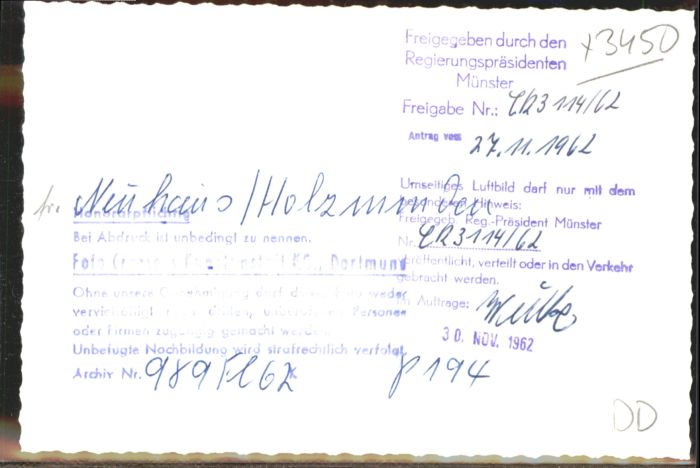 Freigegeben durch den
Regierungspräsidenten
Münster
Freigabe Nr.: CR3114/62
Antrag vom 27.11.1962
x3450
Umseitiges Luftbild darf nur mit dem
Hinweis:
Freigegeb. Reg.-Präsident Münster
Nr. CR3114/62
veröffentlicht, verteilt oder in den Verkehr
gebracht werden.
Im Auftrage:
30. NOV. 1962
Neuhaus/Holzminden
Honorarpflichtig
Bei Abdruck ist unbedingt zu nennen.
Foto KG., Dortmund
Ohne unsere Genehmigung darf dieses Foto weder
Personen
oder Firmen zugängig gemacht werden.
Unbefugte Nachbildung wird strafrechtlich verfolgt
Archiv Nr. 989 Fl 62 K
P 194
DD